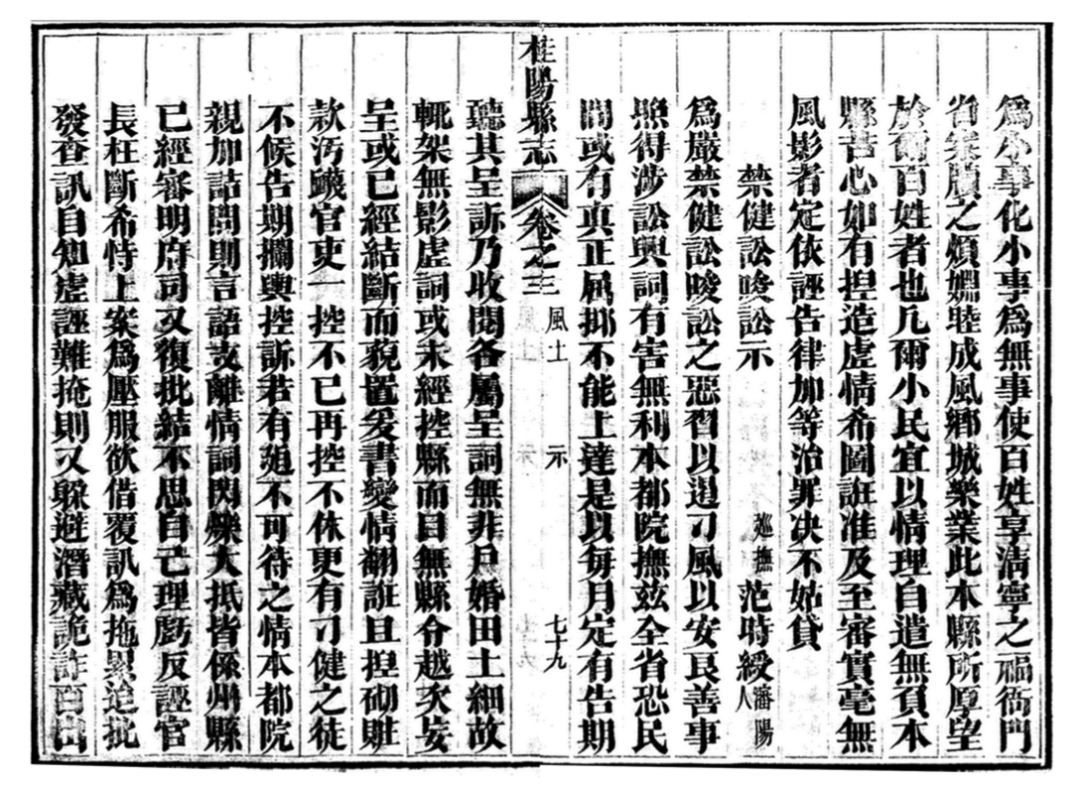 為小事化小事為無事使百姓享清寧之福衙門
省案牘之煩嫻睦成風鄉城樂業此本縣所厚望
於爾百姓者也凡爾小民宜以情理自遣無負本
縣苦心如有揑造虛情希圖誑准及至審實毫無
風影者定依誣告律加等治罪决不姑貸
禁健訟唆訟示
巡撫 范時綬 瀋陽人
為嚴禁健訟唆訟之惡習以遏刁風以安良善事
照得涉訟興詞有害無利本都院撫玆全省恐民
間或有真正屈抑不能上達是以每月定有告期
桂陽縣志 卷之三 風土 示 七十九
聽其呈訴乃收閱各屬呈詞無非戶婚田土細故
輒架無影虛詞或未經控縣而目無縣令越次妄
呈或已經結斷而藐置爰書變情翻誑且揑砌賍
款汚衊官吏一控不已再控不休更有刁健之徒
不候告期攔輿控訴若有廹不可待之情本都院
親加詰問則言語支離情詞閃爍大抵皆係州縣
已經審明府司又復批結不思自己理虧反誣官
長枉斷希恃上案為壓服欲借覆訊為拖累迨批
發查訊自知虛誣難掩則又躲避潛藏詭詐百出